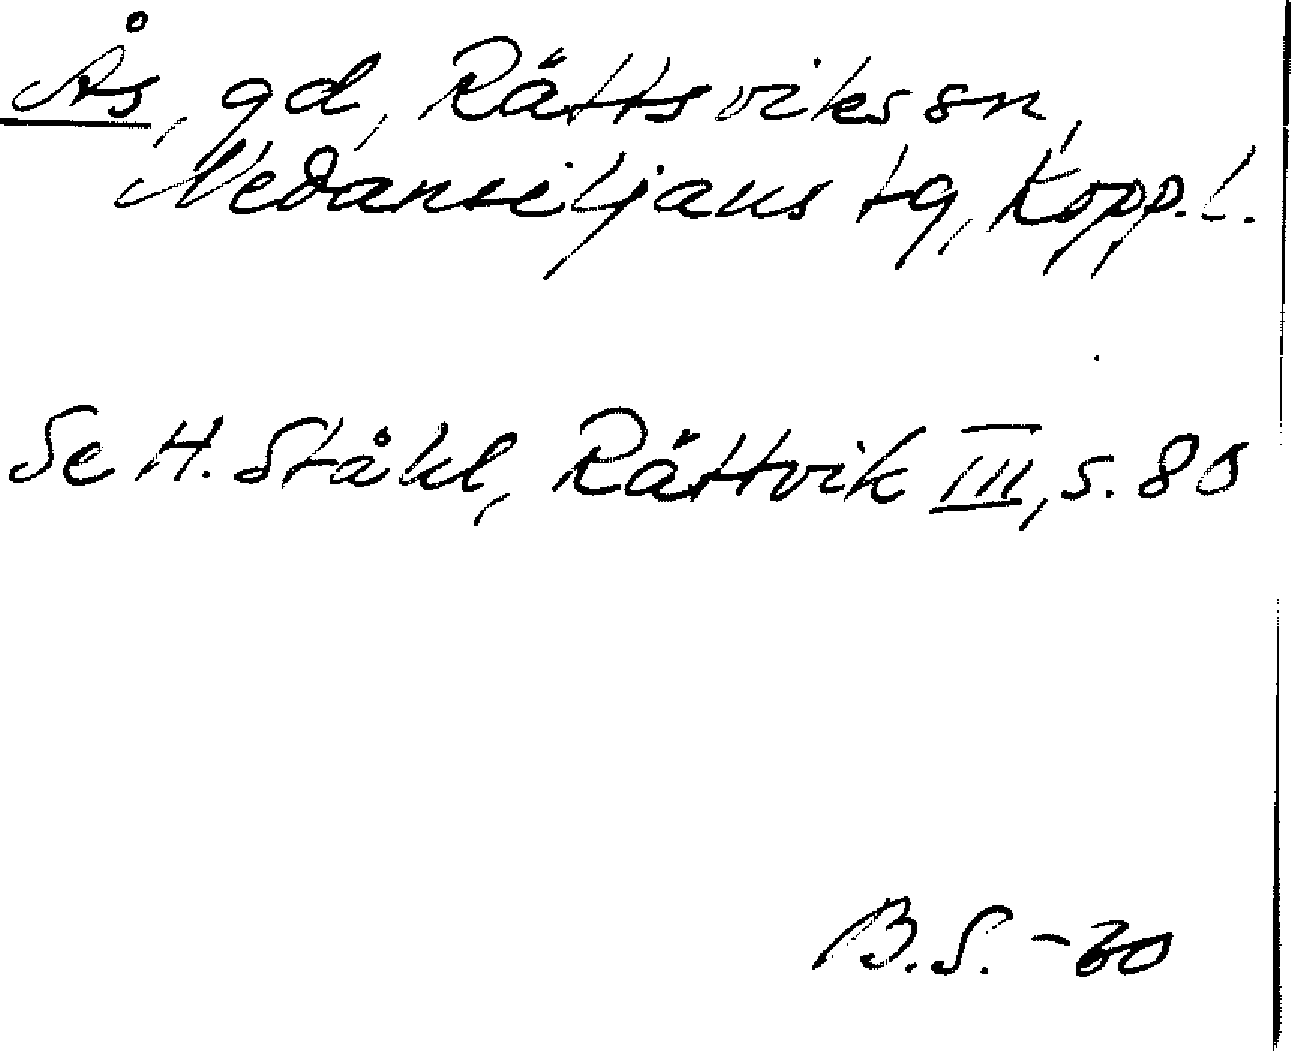 Ås, gd, Rättsviks sn,
Nedansiljans tg, Kopp.l.
Se H. Ståhl, Rättvik III, s. 80
B.S. -